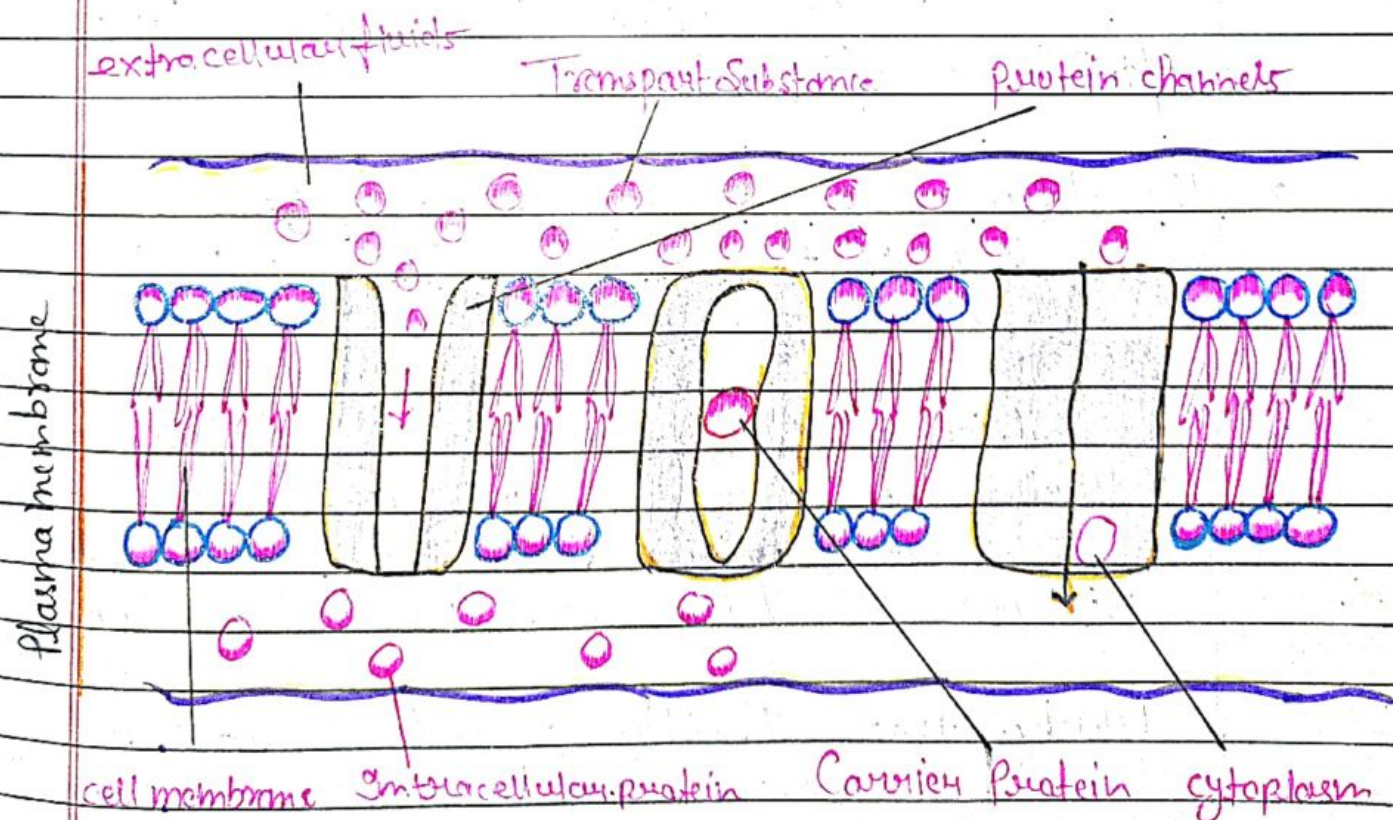 extracellular fluids
Transport Substance
Protein channels
Plasma membrane
cell membrane
Intracellular protein
Carrier Protein
cytoplasm